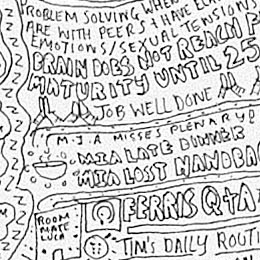 PROBLEM SOLVING WHEN
ARE WITH PEERS + HAVE
EMOTIONS/SEXUAL TENSIONS
BRAIN DOES NOT REACH
MATURITY UNTIL 25
JOB WELL DONE
M.J.A MISSES PLENARY
MIA LATE DINNER
MIA LOST HANDBA
ROOM
MATE
LUCA
FERRIS Q+A
TIM'S DAILY ROUTI